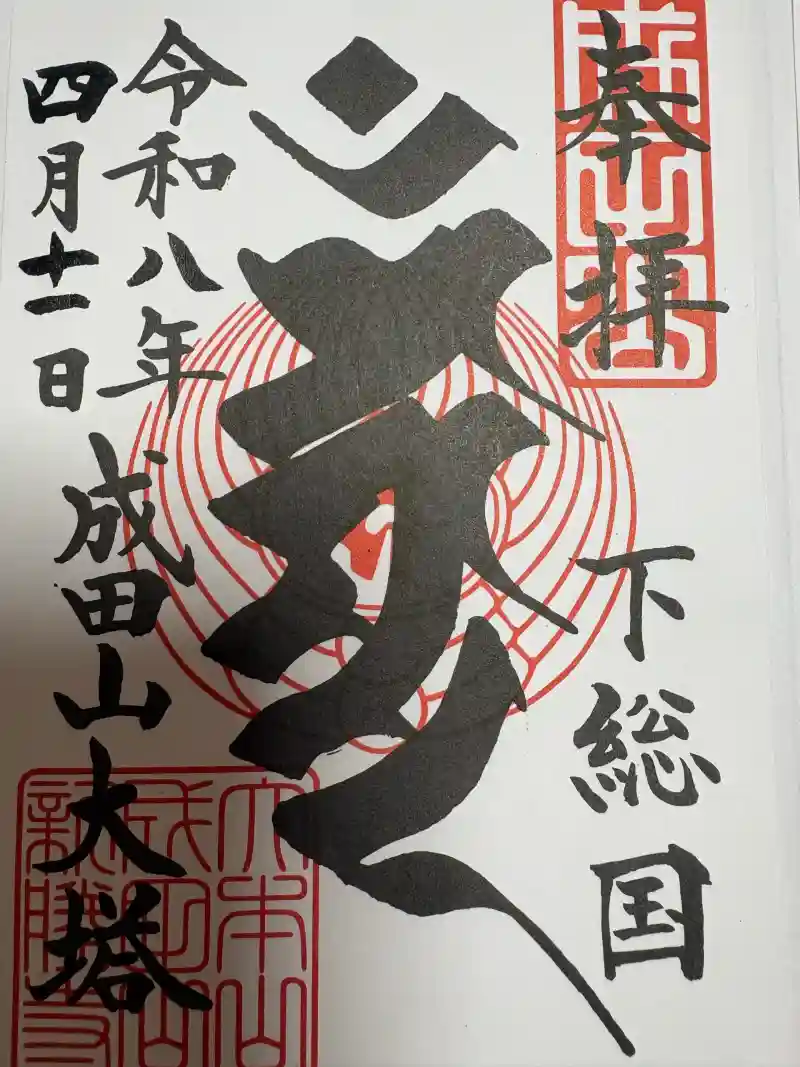 奉拝
成田山
下総国
令和八年
四月十一日
成田山大塔
大本山
成田山
新勝寺